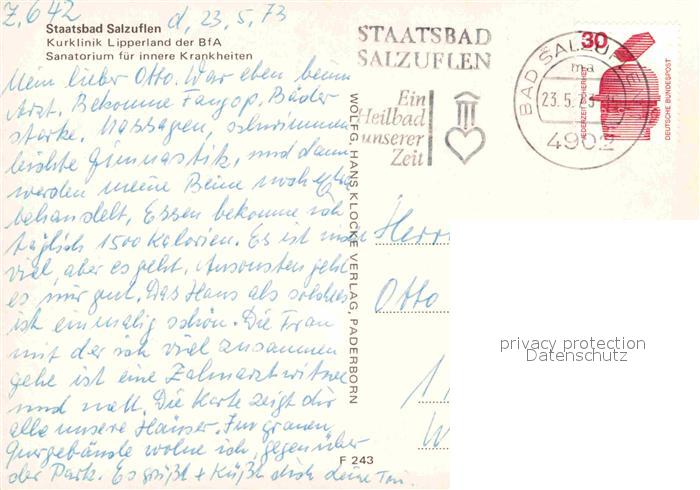 Z. 642
d, 23.5.73
Staatsbad Salzuflen
Kurklinik Lipperland der BfA
Sanatorium für innere Krankheiten
Mein lieber Otto. War eben beim
Arzt. Bekomme Fangop. Bäder
starke Massagen, schwimmen
leichte Gimnastik, und dann
werden meine Beine noch
behandelt. Essen bekomme ich
täglich 1500 Kalorien. Es ist nicht
viel, aber es geht. Ansonsten geht
es mir gut. Das Haus als solches
ist einmalig schön. Die Frau
mit der ich viel zusammen
gehe ist eine Zahnarztwitwe
und nett. Die Karte zeigt dir
alle unsere Häuser. Im grauen
Quergebäude wohne ich, gegenüber
der Park. Es grüßt + küßt dich deine
STAATSBAD
SALZUFLEN
Ein
Heilbad
unserer
Zeit
BAD SALZUFLEN
ma
23.5.73
4902
30
JEDERZEIT SICHERHEIT
DEUTSCHE BUNDESPOST
WOLFG. HANS KLOCKE VERLAG, PADERBORN
Herrn
Otto
1
W
F 243
privacy protection
Datenschutz